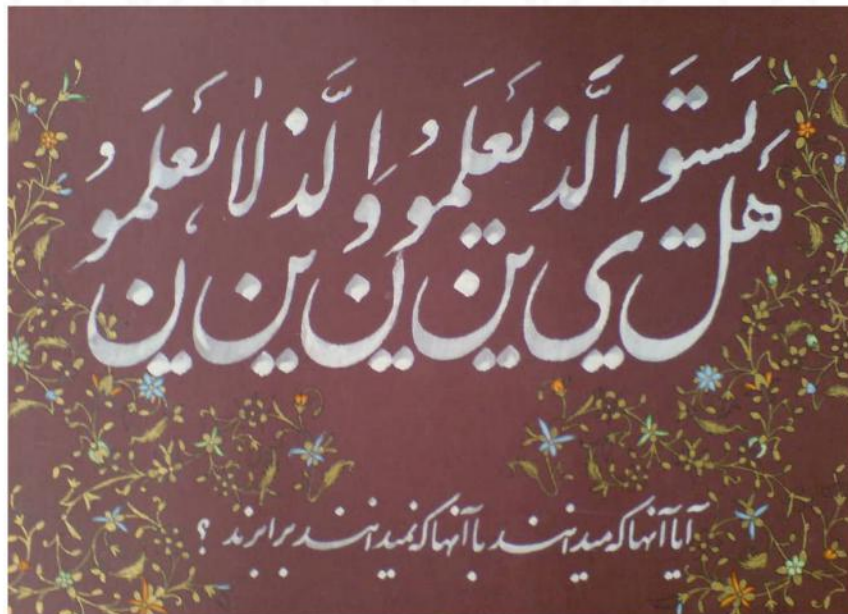 هَل يَستَوي الَّذينَ يَعلَمُونَ وَالَّذينَ لاٰ يَعلَمُونَ
آیا آنها که میدانند با آنها که نمیدانند برابرند ؟